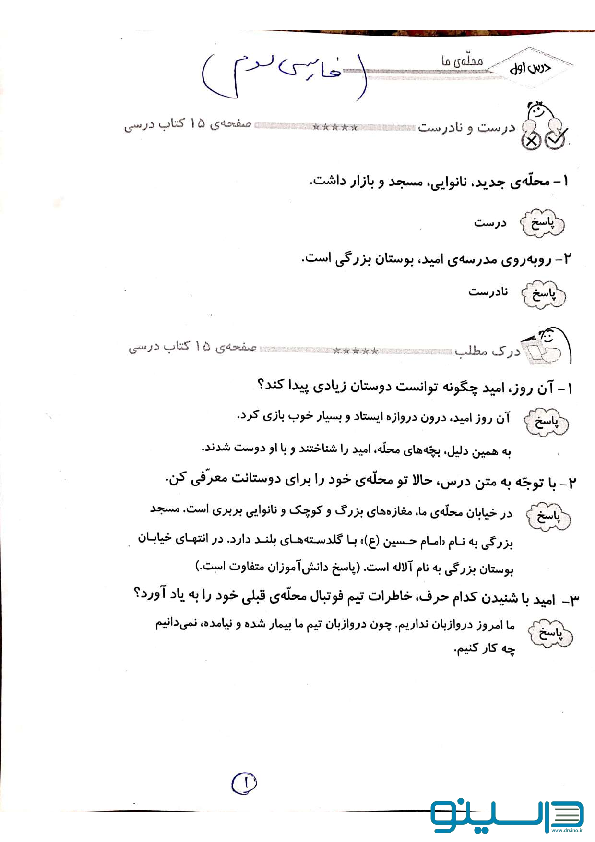 درس اول
محلّه‌ی ما
(فارسی سوم)
درست و نادرست ***** صفحه‌ی ۱۵ کتاب درسی
۱- محلّه‌ی جدید، نانوایی، مسجد و بازار داشت.
پاسخ درست
۲- روبه‌روی مدرسه‌ی امید، بوستان بزرگی است.
پاسخ نادرست
درک مطلب ***** صفحه‌ی ۱۵ کتاب درسی
۱- آن روز، امید چگونه توانست دوستان زیادی پیدا کند؟
پاسخ آن روز امید، درون دروازه ایستاد و بسیار خوب بازی کرد.
به همین دلیل، بچّه‌های محلّه، امید را شناختند و با او دوست شدند.
۲- با توجّه به متن درس، حالا تو محلّه‌ی خود را برای دوستانت معرّفی کن.
پاسخ در خیابان محلّه‌ی ما، مغازه‌های بزرگ و کوچک و نانوایی بربری است. مسجد
بزرگی به نام «امام حسین (ع)» با گلدسته‌های بلند دارد. در انتهای خیابان
بوستان بزرگی به نام آلاله است. (پاسخ دانش‌آموزان متفاوت است.)
۳- امید با شنیدن کدام حرف، خاطرات تیم فوتبال محلّه‌ی قبلی خود را به یاد آورد؟
پاسخ ما امروز دروازبان نداریم. چون دروازبان تیم ما بیمار شده و نیامده، نمی‌دانیم
چه کار کنیم.
۱
درسینو
www.drsino.ir